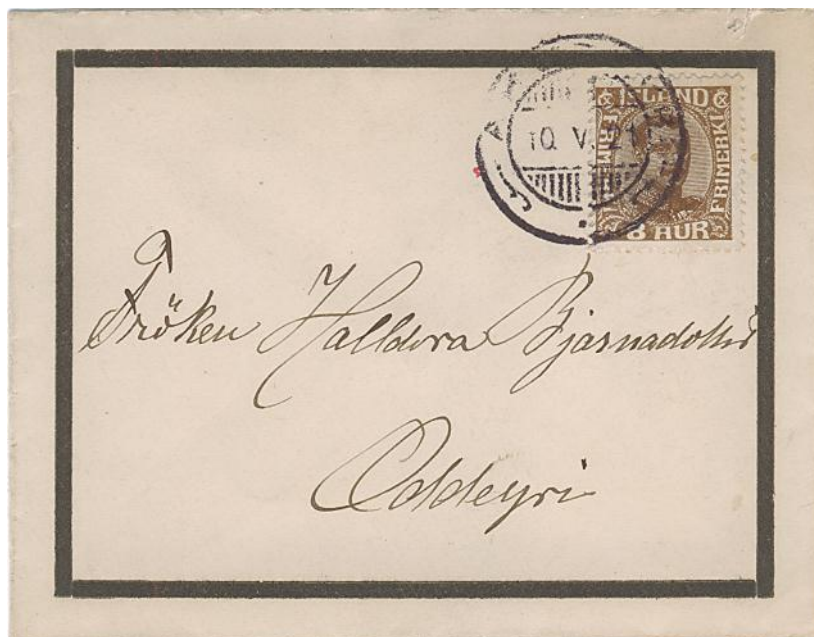 10. V. 21
ISLAND
FRIMERKI
FRIMERKI
8 AUR
Fröken Halldora Bjarnadottir
Oddeyri